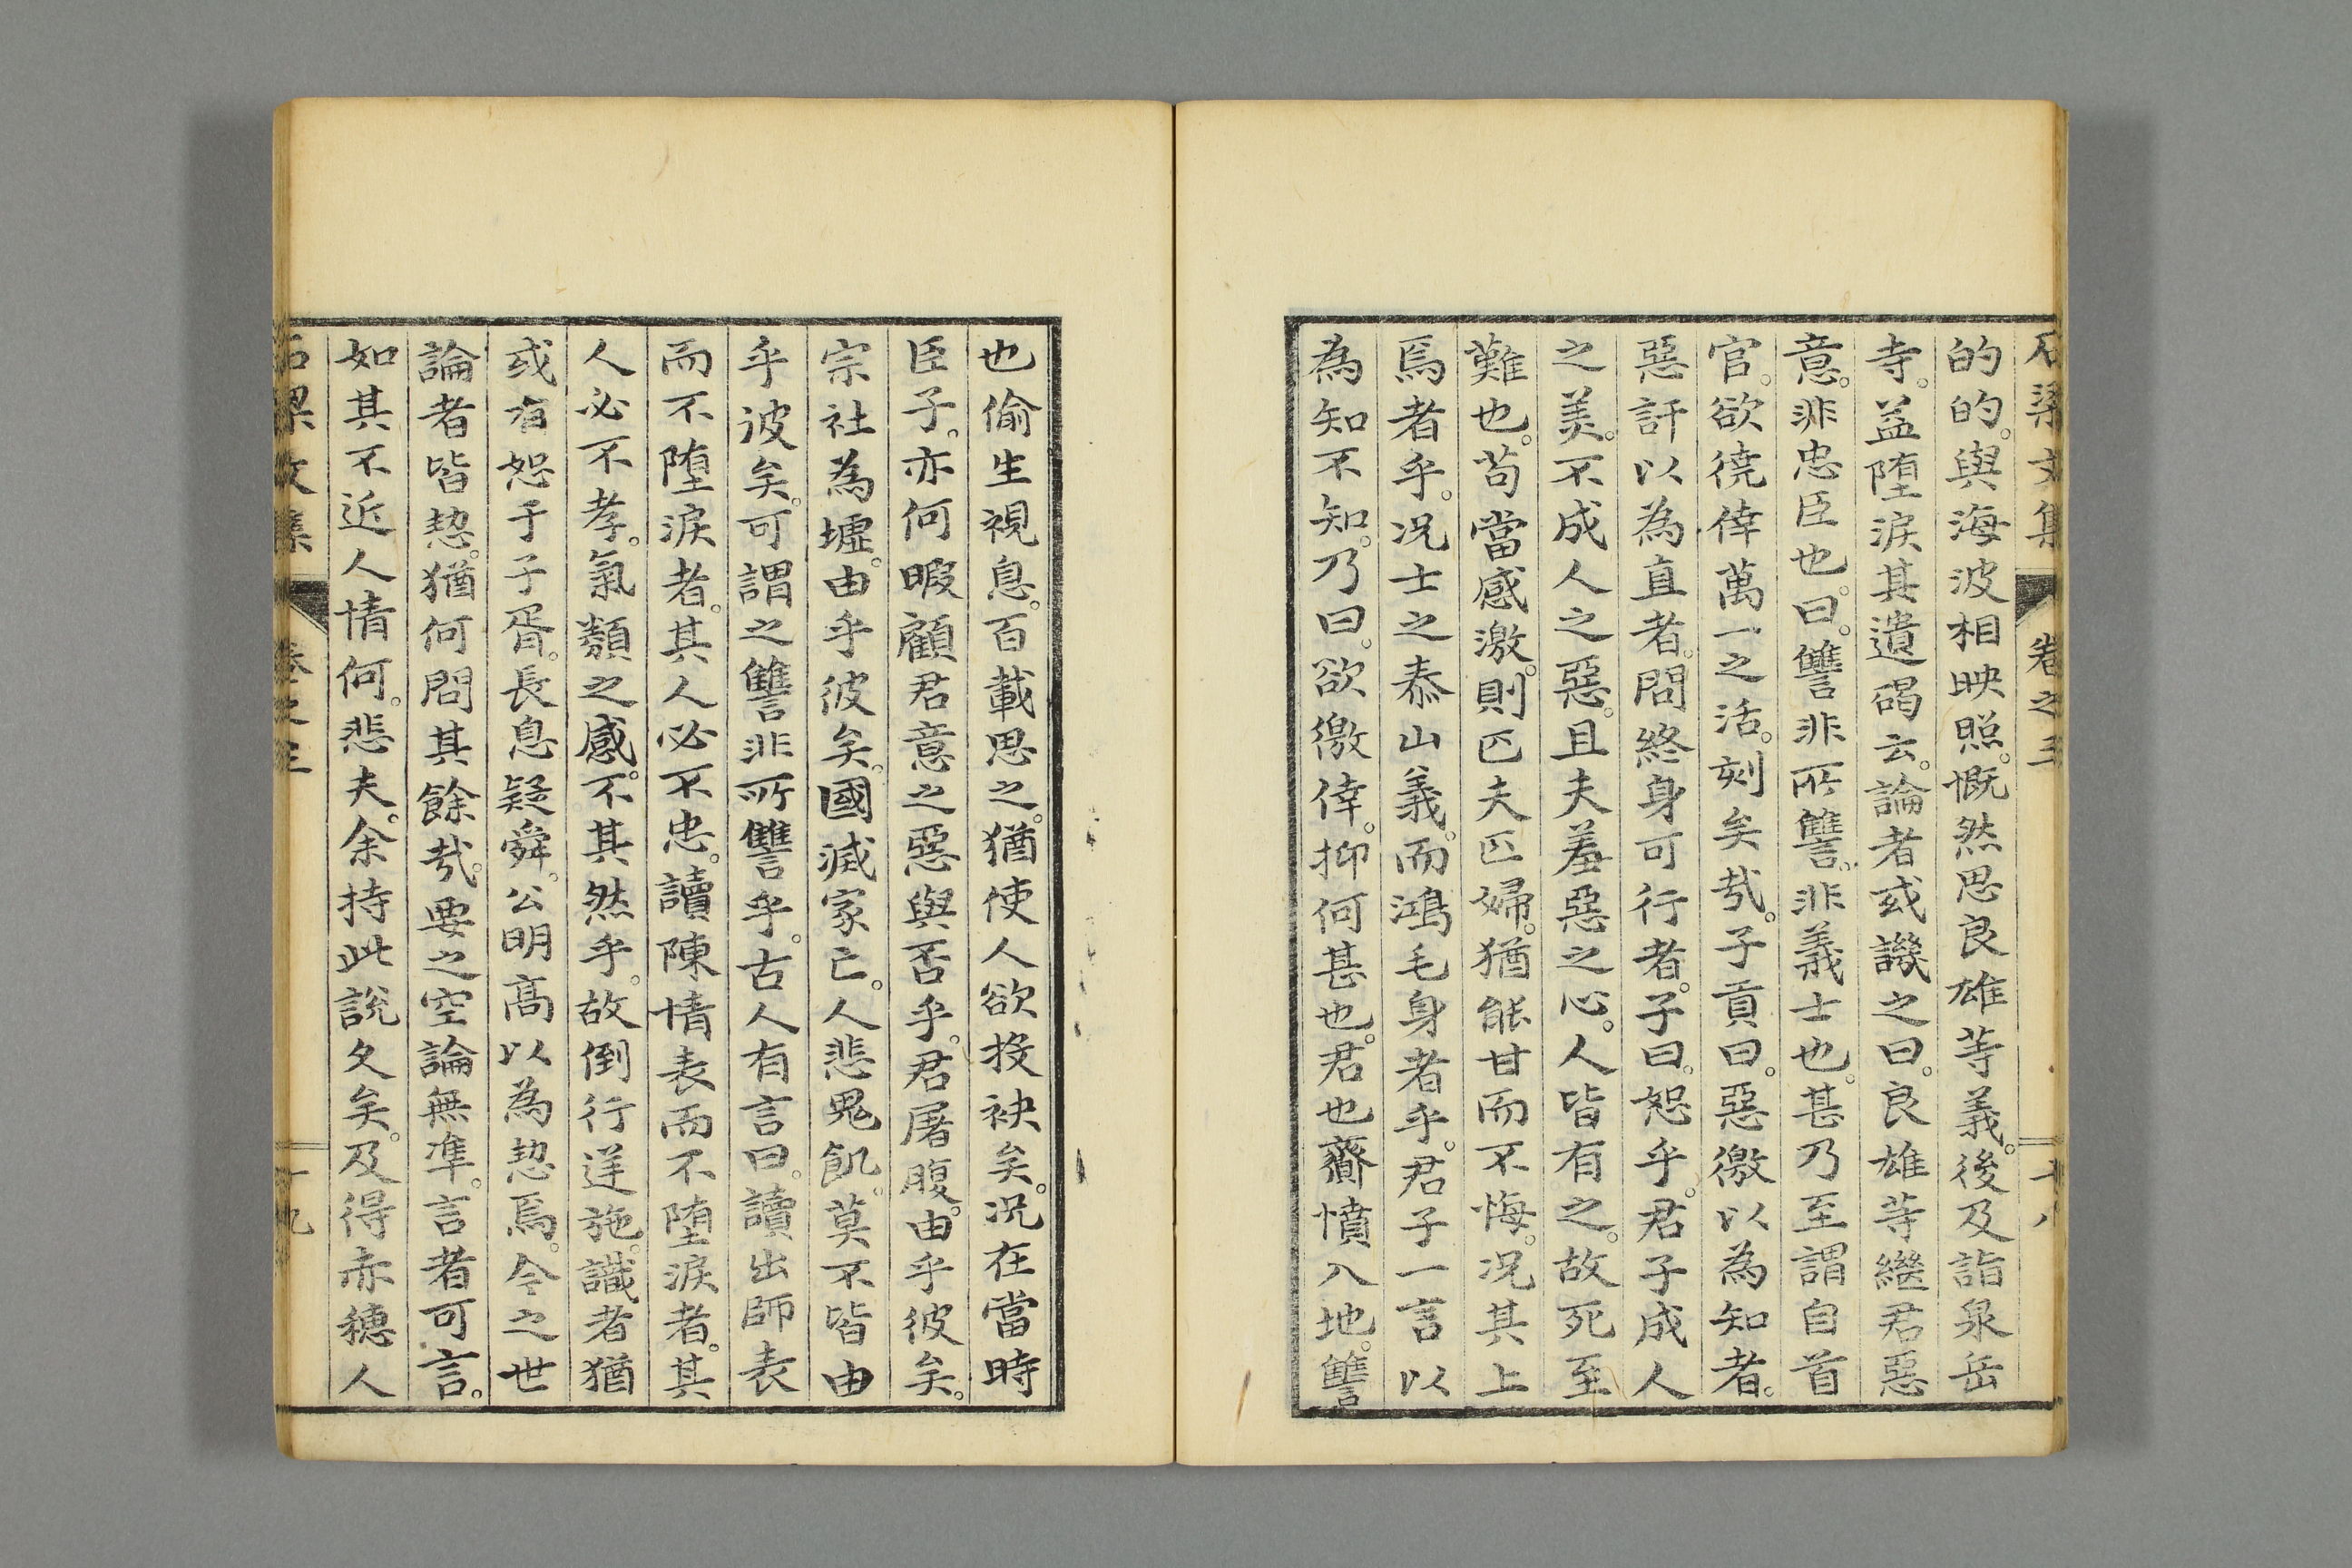 石梁文集 卷之三 十八
的的。與海波相映照。慨然思良雄等義。後及詣泉岳
寺。益堕淚其遺碣云。論者或譏之曰。良雄等繼君惡
意。非忠臣也。曰。讐非所讐。非義士也。甚乃至謂自首
官。欲徼倖萬一之活。刻矣哉。子貢曰。惡徼以為知者。
惡訐以為直者。問終身可行者。子曰。恕乎。君子成人
之美。不成人之惡。且夫羞惡之心。人皆有之。故死至
難也。苟當感激。則匹夫匹婦。猶能甘而不悔。况其上
焉者乎。况士之泰山義。而鴻毛身者乎。君子一言以
為知不知。乃曰。欲徼倖。抑何甚也。君也齎憤入地。讐
也偷生視息。百載思之。猶使人欲投袂矣。况在當時
臣子。亦何暇顧君意之惡與否乎。君屠腹。由乎彼矣。
宗社為墟。由乎彼矣。國滅家亡。人悲鬼飢。莫不皆由
乎彼矣。可謂之讐非所讐乎。古人有言曰。讀出師表
而不堕淚者。其人必不忠。讀陳情表而不堕淚者。其
人必不孝。氣類之感。不其然乎。故倒行逆施。識者猶
或有恕于子胥。長息疑舜。公明高以為恝焉。今之世
論者皆恝。猶何問其餘哉。要之空論無準。言者可言。
如其不近人情何。悲夫。余持此說久矣。及得赤穗人
石梁文集 卷之三 十九